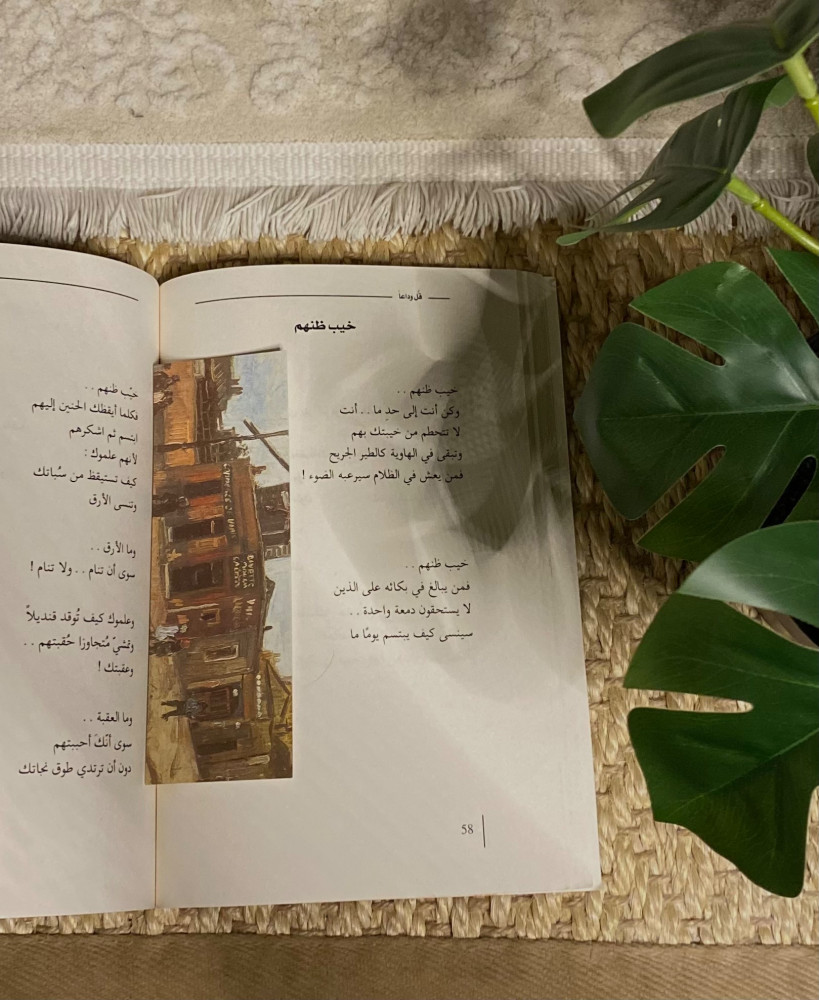 قُل وداعاً
خيب ظنهم
خيب ظنهم . .
وكن أنت إلى حدٍ ما . . أنت
لا تتحطم من خيبتك بهم
وتبقى في الهاوية كالطير الجريح
فمن يعش في الظلام سيرعبه الضوء !
خيب ظنهم . .
فمن يبالغ في بكائه على الذين
لا يستحقون دمعة واحدة . .
سينسى كيف يبتسم يومًا ما
58
خيّب ظنهم . .
فكلما أيقظك الحنين إليهم
ابتسم ثم اشكرهم
لأنهم علموك :
كيف تستيقظ من سُباتك
وتنسى الأرق
وما الأرق . .
سوى أن تنام . . ولا تنام !
وعلموك كيف تُوقد قنديلاً
وتمشيّ مُتجاوزا حُقبتهم . .
وعقبتك !
وما العقبة . .
سوى أنّكَ أحببتهم
دون أن ترتدي طوق نجاتك